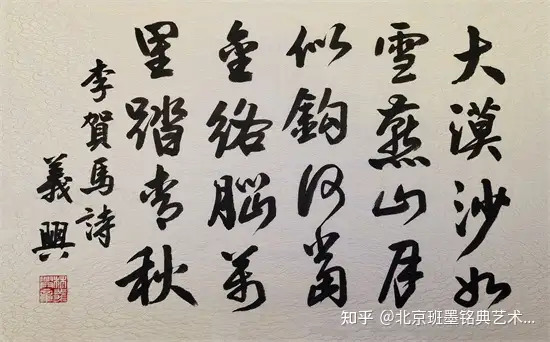 大漠沙如
雪燕山月
似鈎何當
金络腦萬
里踏青秋
李賀馬詩
義興
知乎 @北京班墨铭典艺术...